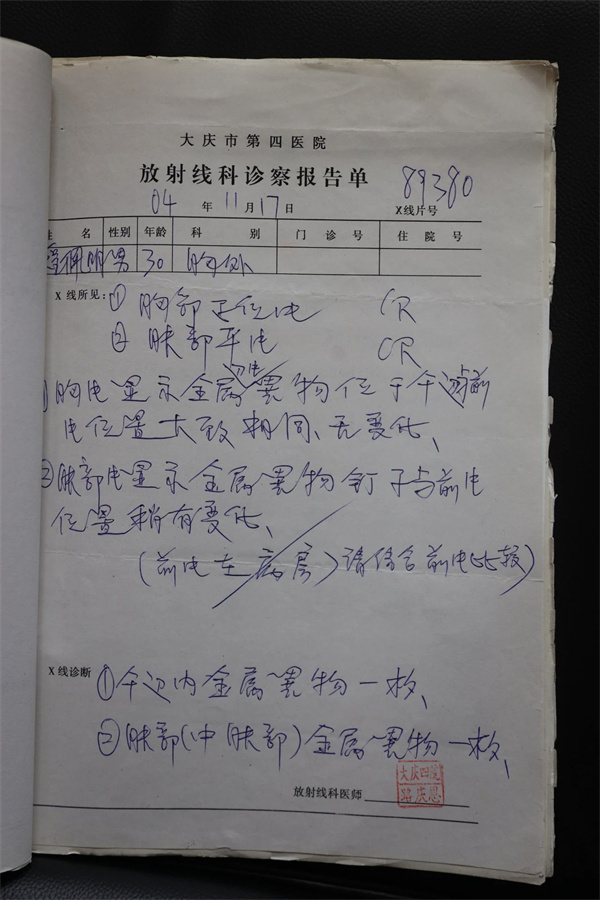 大庆市第四医院
放射线科诊察报告单
89380
04年11月17日 X线片号
姓名 性别 年龄 科别 门诊号 住院号
佩明 男 30 胸外
X线所见:① 胸部正位片 CR
② 腹部平片 CR
① 胸片显示金属异物位于 前
片位置大致相同、无变化、
② 腹部片显示金属异物钉子与前片
位置稍有变化、
(前片在病房)请结合前片比较)
X线诊断 ① 内金属异物一枚、
② 腹部(中腹部)金属异物一枚、
放射线科医师
大庆四院
路庆恩